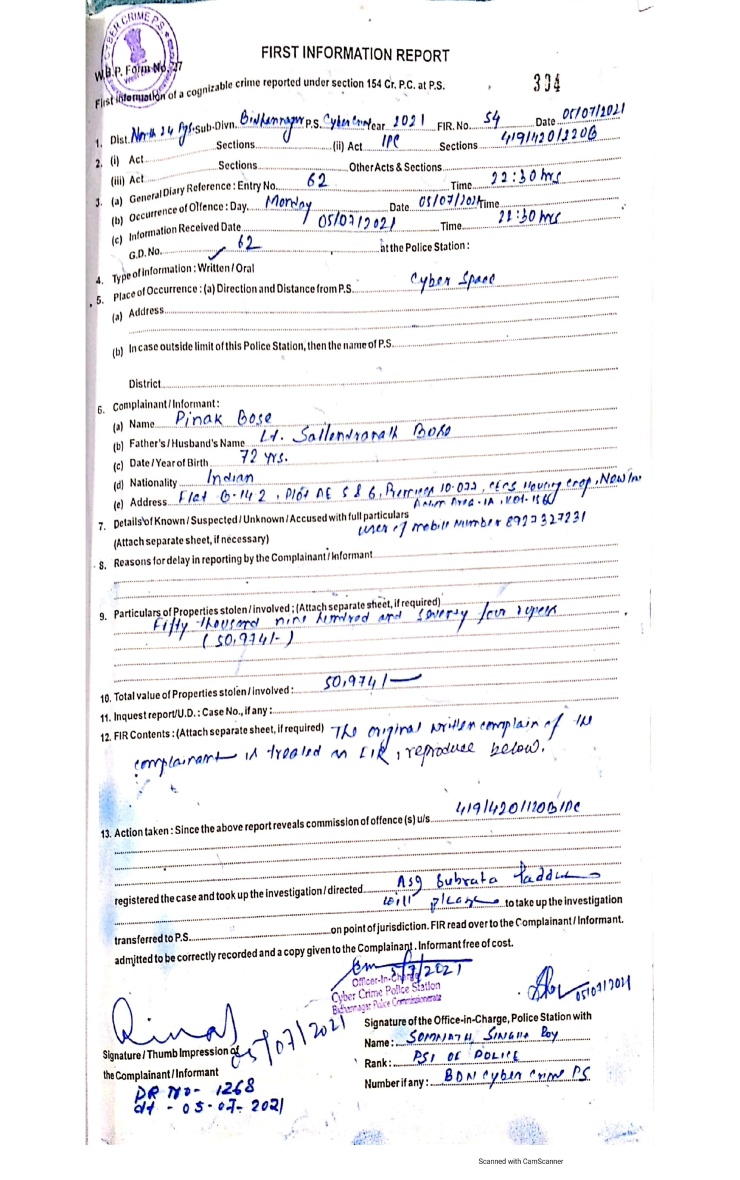 CYBER CRIME P.S.
FIRST INFORMATION REPORT
W.B.P. Form No. 27
334
First information of a cognizable crime reported under section 154 Cr. P.C. at P.S.
1. Dist. North 24 Pgs. Sub-Divn. Bidhannagar P.S. Cyber Crime Year 2021 FIR. No. 54 Date 05/07/2021
2. (i) Act Sections (ii) Act IPC Sections 419/420/120B
(iii) Act Sections Other Acts & Sections
3. (a) General Diary Reference : Entry No. 62 Time 22:30 hrs
(b) Occurrence of Offence : Day. Monday Date 05/07/2021 Time
(c) Information Received Date 05/07/2021 Time 22:30 hrs
G.D. No. 62 at the Police Station :
4. Type of Information : Written / Oral
5. Place of Occurrence : (a) Direction and Distance from P.S. Cyber Space
(a) Address
(b) In case outside limit of this Police Station, then the name of P.S.
District
6. Complainant / Informant :
(a) Name Pinak Bose
(b) Father's / Husband's Name Lt. Sailendranath Bose
(c) Date / Year of Birth 72 yrs.
(d) Nationality Indian
(e) Address Flat G-14 2, Plot AE 5 & 6, Premises 10-033, Housing coop, New Town
Area-1A, Kol-
7. Details of Known / Suspected / Unknown / Accused with full particulars
(Attach separate sheet, if necessary) user of mobile number 8927327231
8. Reasons for delay in reporting by the Complainant / Informant
9. Particulars of Properties stolen / involved ; (Attach separate sheet, if required)
Fifty thousand nine hundred and seventy four rupees
(50,974/-)
10. Total value of Properties stolen / involved : 50,974/-
11. Inquest report/U.D. : Case No., if any :
12. FIR Contents : (Attach separate sheet, if required) The original written complain of the
complainant is treated as FIR, reproduce below.
13. Action taken : Since the above report reveals commission of offence (s) u/s. 419/420/120B/IPC
registered the case and took up the investigation / directed ASI Subrata
will please to take up the investigation
transferred to P.S. on point of jurisdiction. FIR read over to the Complainant / Informant.
admitted to be correctly recorded and a copy given to the Complainant. Informant free of cost.
5/7/2021
Officer-In-Charge
Cyber Crime Police Station
Bidhannagar Police Commissionerate
05/07/2021
05/07/2021
Signature of the Office-in-Charge, Police Station with
Name : Somnath Singha Roy
Rank : PSI of Police
Number if any : BDN Cyber Crime PS.
Signature / Thumb Impression of
the Complainant / Informant
DR No- 1268
dt - 05-07-2021
Scanned with CamScanner